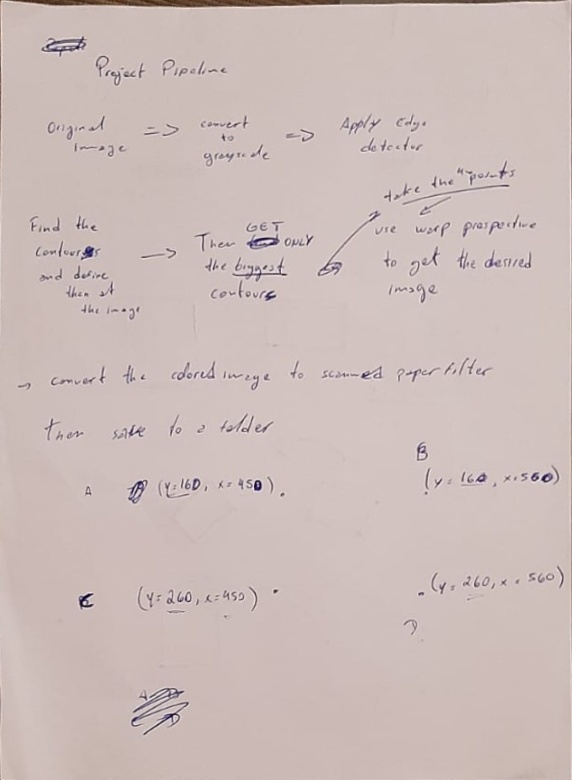 Project Pipeline
Original image => convert to grayscale => Apply Edge detector
Find the contours and define then at the image -> Then GET ONLY the biggest contours
take the 4 points
use warp prospective to get the desired image
-> convert the colored image to scanned paper filter
then save to a folder
A (y=160, x=450) .
B (y=160, x=560)
C (y=260, x=450) .
. (y=260, x=560)
D